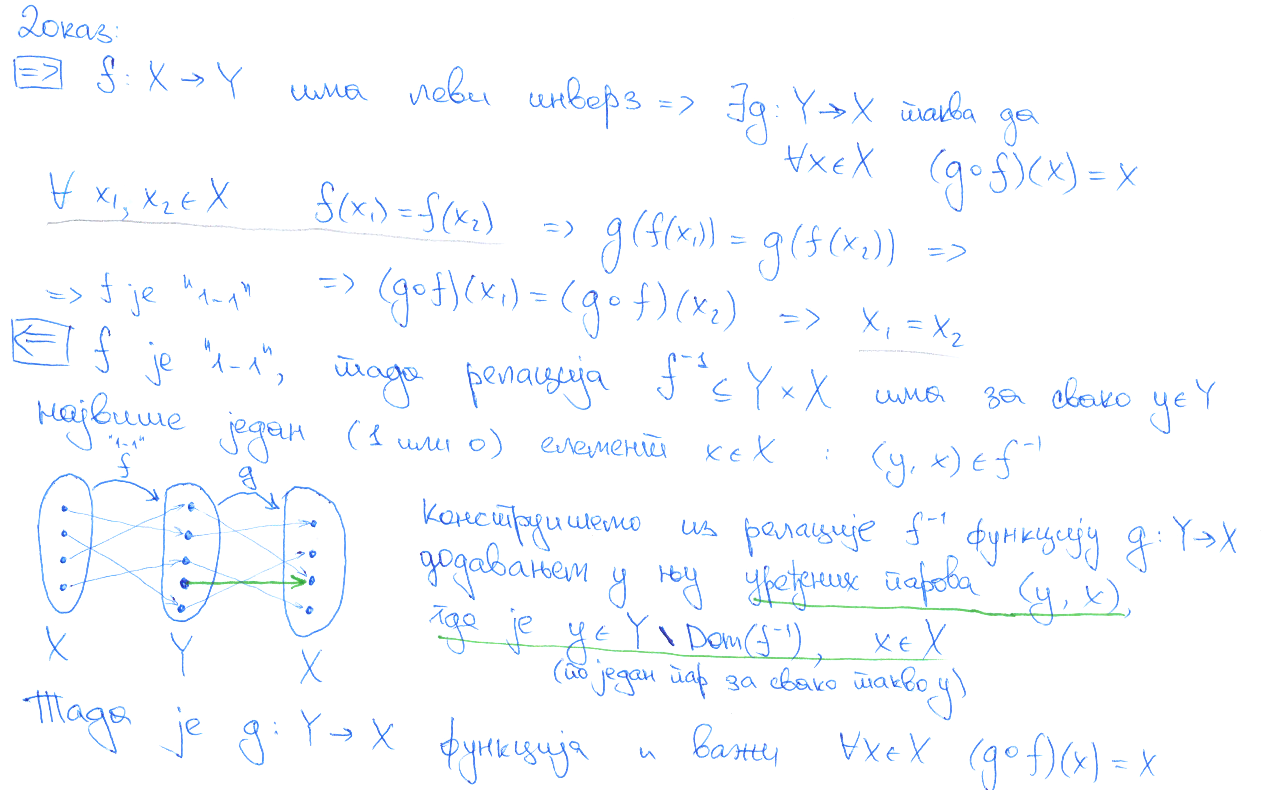 Доказ:
=> f : X → Y има леви инверз => ∃g : Y → X таква да
∀x ∈ X (g ∘ f)(x) = x
∀ x₁, x₂ ∈ X f(x₁) = f(x₂) => g(f(x₁)) = g(f(x₂)) =>
=> f је "1-1" => (g∘f)(x₁) = (g ∘ f)(x₂) => x₁ = x₂
<= f је "1-1", тада релација f⁻¹ ⊆ Y × X има за свако y ∈ Y
највише један (1 или 0) елеменат x ∈ X : (y, x) ∈ f⁻¹
"1-1"
f g
Конструишемо из релације f⁻¹ функцију g : Y → X
додавањем у њу уређених парова (y, x),
где је y ∈ Y \ Dom(f⁻¹), x ∈ X
X Y X
(по један пар за свако такво y)
Тада је g : Y → X функција и важи ∀x ∈ X (g ∘ f)(x) = x